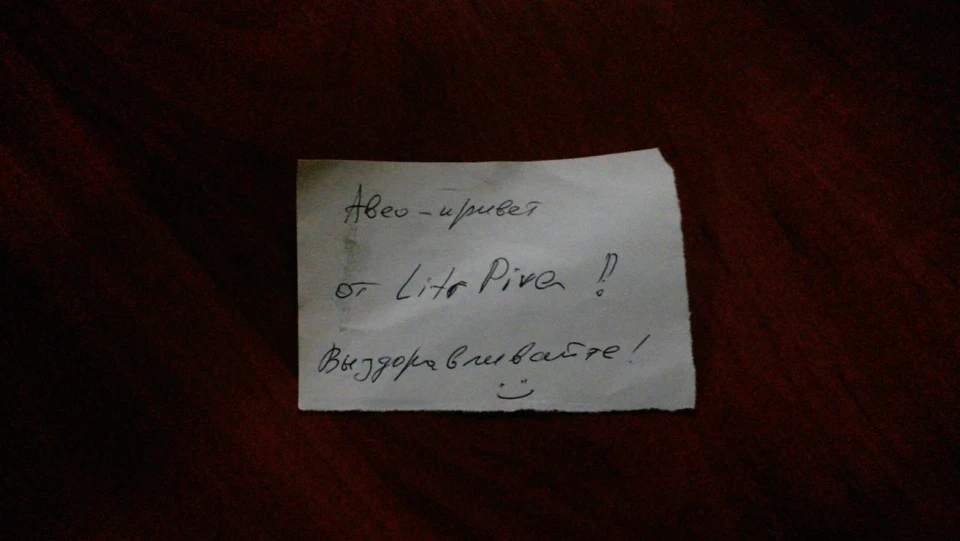 Авео-привет
от Litr Piva !!
Выздоравливайте!